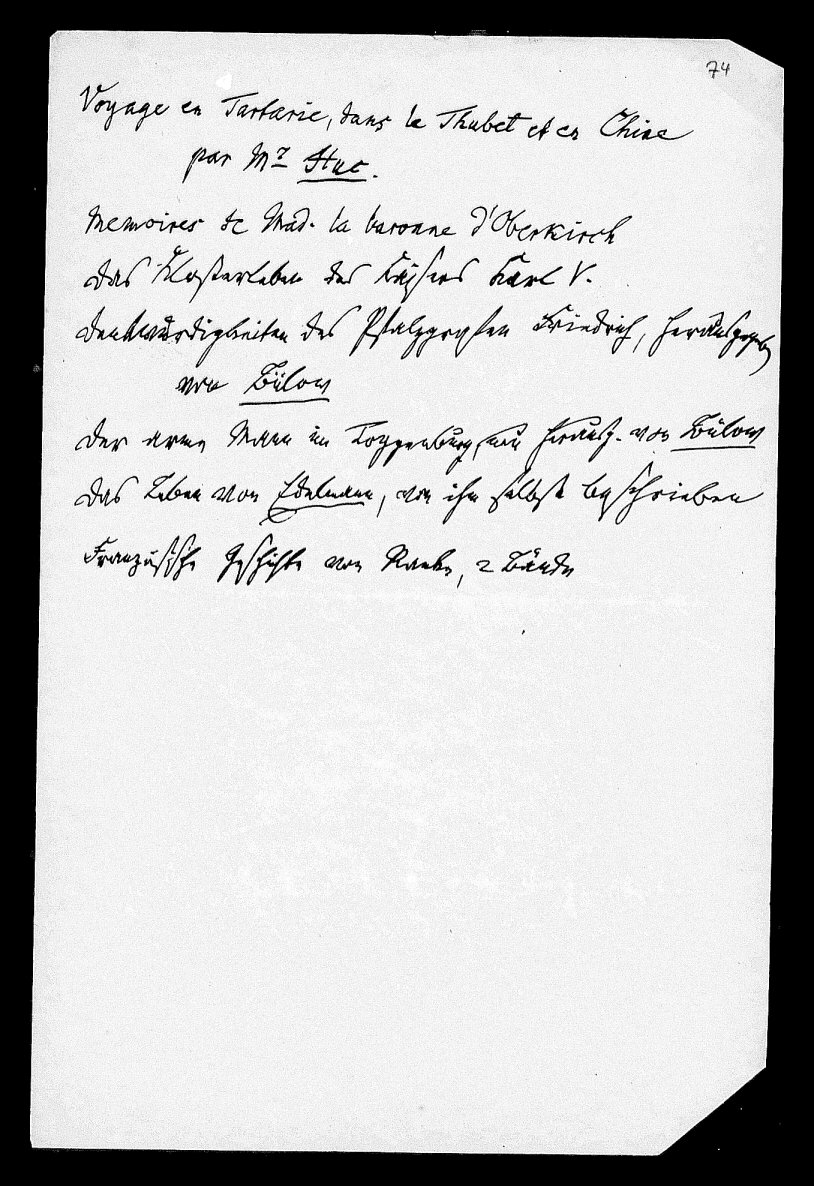 74
Voyage en Tartarie, dans le Thubet et en Chine
par Mr Huc.
Memoires de Mad. la baronne d'Oberkirch
Das Klosterleben des Kaisers Karl V.
Denkwürdigkeiten des Pfalzgrafen Friedrich, herausgegeben
von Bülow
Der arme Mann im Toggenburg, herausg. von Bülow
Das Leben von Edelmann, von ihm selbst beschrieben
Französische Geschichte von Ranke, 2 Bände